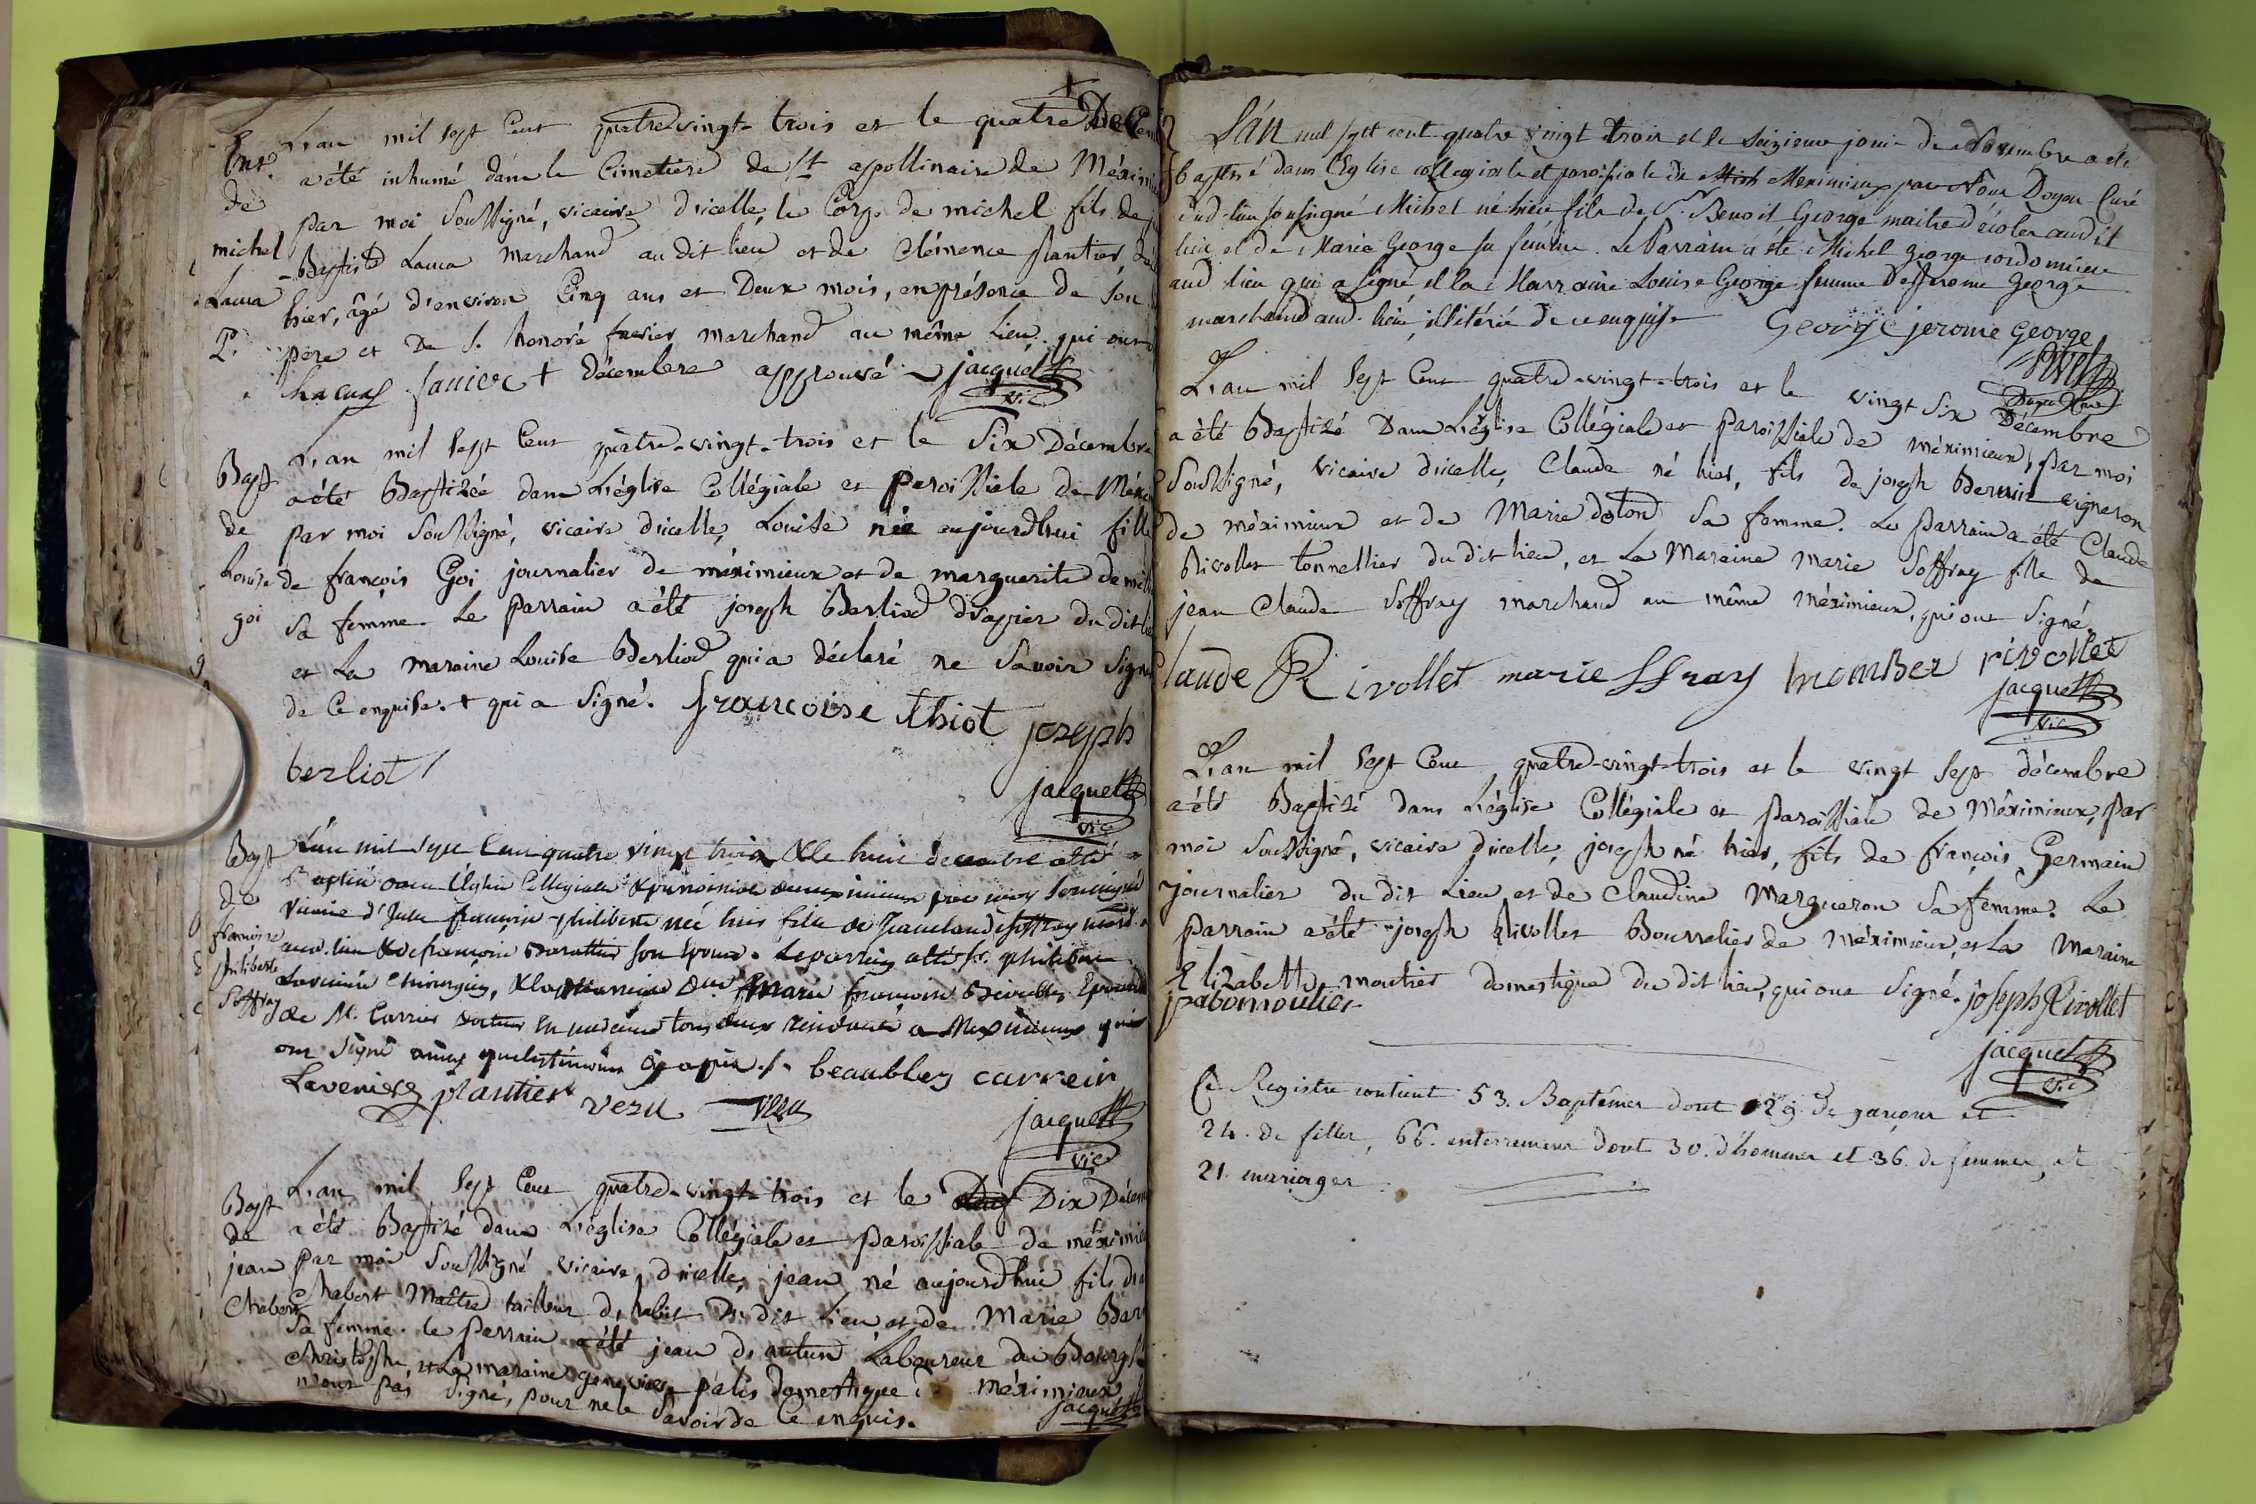 Ent.
de
michel
Lacua
P.
L'an mil Sept Cent quatre-vingt-trois et le quatre
a été inhumé dans le Cimetiere de St appollinaire de
par moi Soussigné, vicaire d'icelle, le Corps de michel fils de
Baptiste Lacua marchand au dit lieu et de Clémence plantier
hier, âgé d'environ Cinq ans et Deux mois, en présence de Son
père et De S. honoré favier marchand au même Lieu. qui ont
favier + décembre approuvé jacquet
vic
Bapt
de
Louise
goi
L'an mil Sept Cent quatre-vingt-trois et le Six Décembre
a été Baptizée dans L'église Collégiale et paroissiale de
par moi Soussigné, vicaire d'icelle, Louise née aujourd'hui fille
de françois Goi journalier de méximieux et de marguerite
Sa femme. Le parrain a été joseph Berliod drapier du dit
et La maraine Louise Berliod qui a déclaré ne Savoir
de Ce enquise. + qui a Signé. francoise thiot joseph
berliot
jacquet
vic
Bapt
de
francoise
philiberte
Soffray
L'an mil sept cent quatre vingt trois & le huit decembre a été
Baptisé dans l'église Collegiale & paroissiale de meximieux par moy soussigné
Vicaire d'icelle françoise philiberte née hier fille de Jean claude Soffray
aud. lieu & de françoise son epouse. Le parrein a été Sr. philibert
chirurgien, & la marreine Dme marie françoise
de M. Carrier en medecine tous deux a Meximieux qui
ont Signé avec beaublez carreir
Laveniere plantier veru veru
jacquet
vic
Bapt
de
jean
Chabert
L'an mil Sept Cent quatre-vingt-trois et le Dix
a été Baptizé dans L'église Collégiale et paroissiale de
par moi Soussigné vicaire d'icelle, jean né aujourd'hui fils
Chabert Maître tailleur d'habit Du dit Lieu et de Marie
Sa femme. le parrain a été jean Laboureur du Bourg
Christophe, et La maraine genevieve palis domestique à méximieux
n'ont pas Signé, pour ne le Savoir de Ce enquis. jacquet
L'an mil sept cent quatre vingt trois et le seizieme jour de Novembre a été
baptisé dans l'Eglise collegiale et paroissiale de Meximieux par Nous Doyen Curé
dud. lieu soussigné Michel né hier fils de Sr Benoit George maitre d'école audit
lieu et de Marie George sa femme. Le Parrain a été Michel George cordonnier
aud. lieu qui a signé et la Marraine Louise George femme de Jerome George
marchand aud. lieu illitérée de ce enquise George jerome george
L'an mil Sept Cent quatre-vingt-trois et le vingt Six Décembre
a été Baptizé Dans L'église Collégiale et paroissiale de méximieux, par moi
Soussigné, vicaire d'icelle, Claude né hier, fils de joseph vigneron
de méximieux et de Marie Sa femme. Le parrain a été Claude
Rivollet tonnellier du dit lieu, et La Maraine marie Soffray fille de
jean Claude Soffray marchand au même méximieux, qui ont Signé.
Claude Rivollet marie rivollet
jacquet
vic
L'an mil Sept Cent quatre-vingt-trois et le vingt Sept décembre
a été Baptizé dans L'église Collégiale et paroissiale de Méximieux, par
moi Soussigné, vicaire d'icelle, joseph né hier, fils de françois Germain
journalier du dit Lieu et de Claudine Margueron Sa femme. Le
parrain a été joseph Rivollet Bourrelier de Méximieux, et La maraine
Elizabeth moutier domestique du dit lieu, qui ont Signé. joseph Rivollet
jacquet
vic
Ce Registre contient 53. Baptêmes dont 29. de garçons et
24. de filles, 66. enterremens dont 30. d'hommes et 36. de femmes, et
21. mariages.